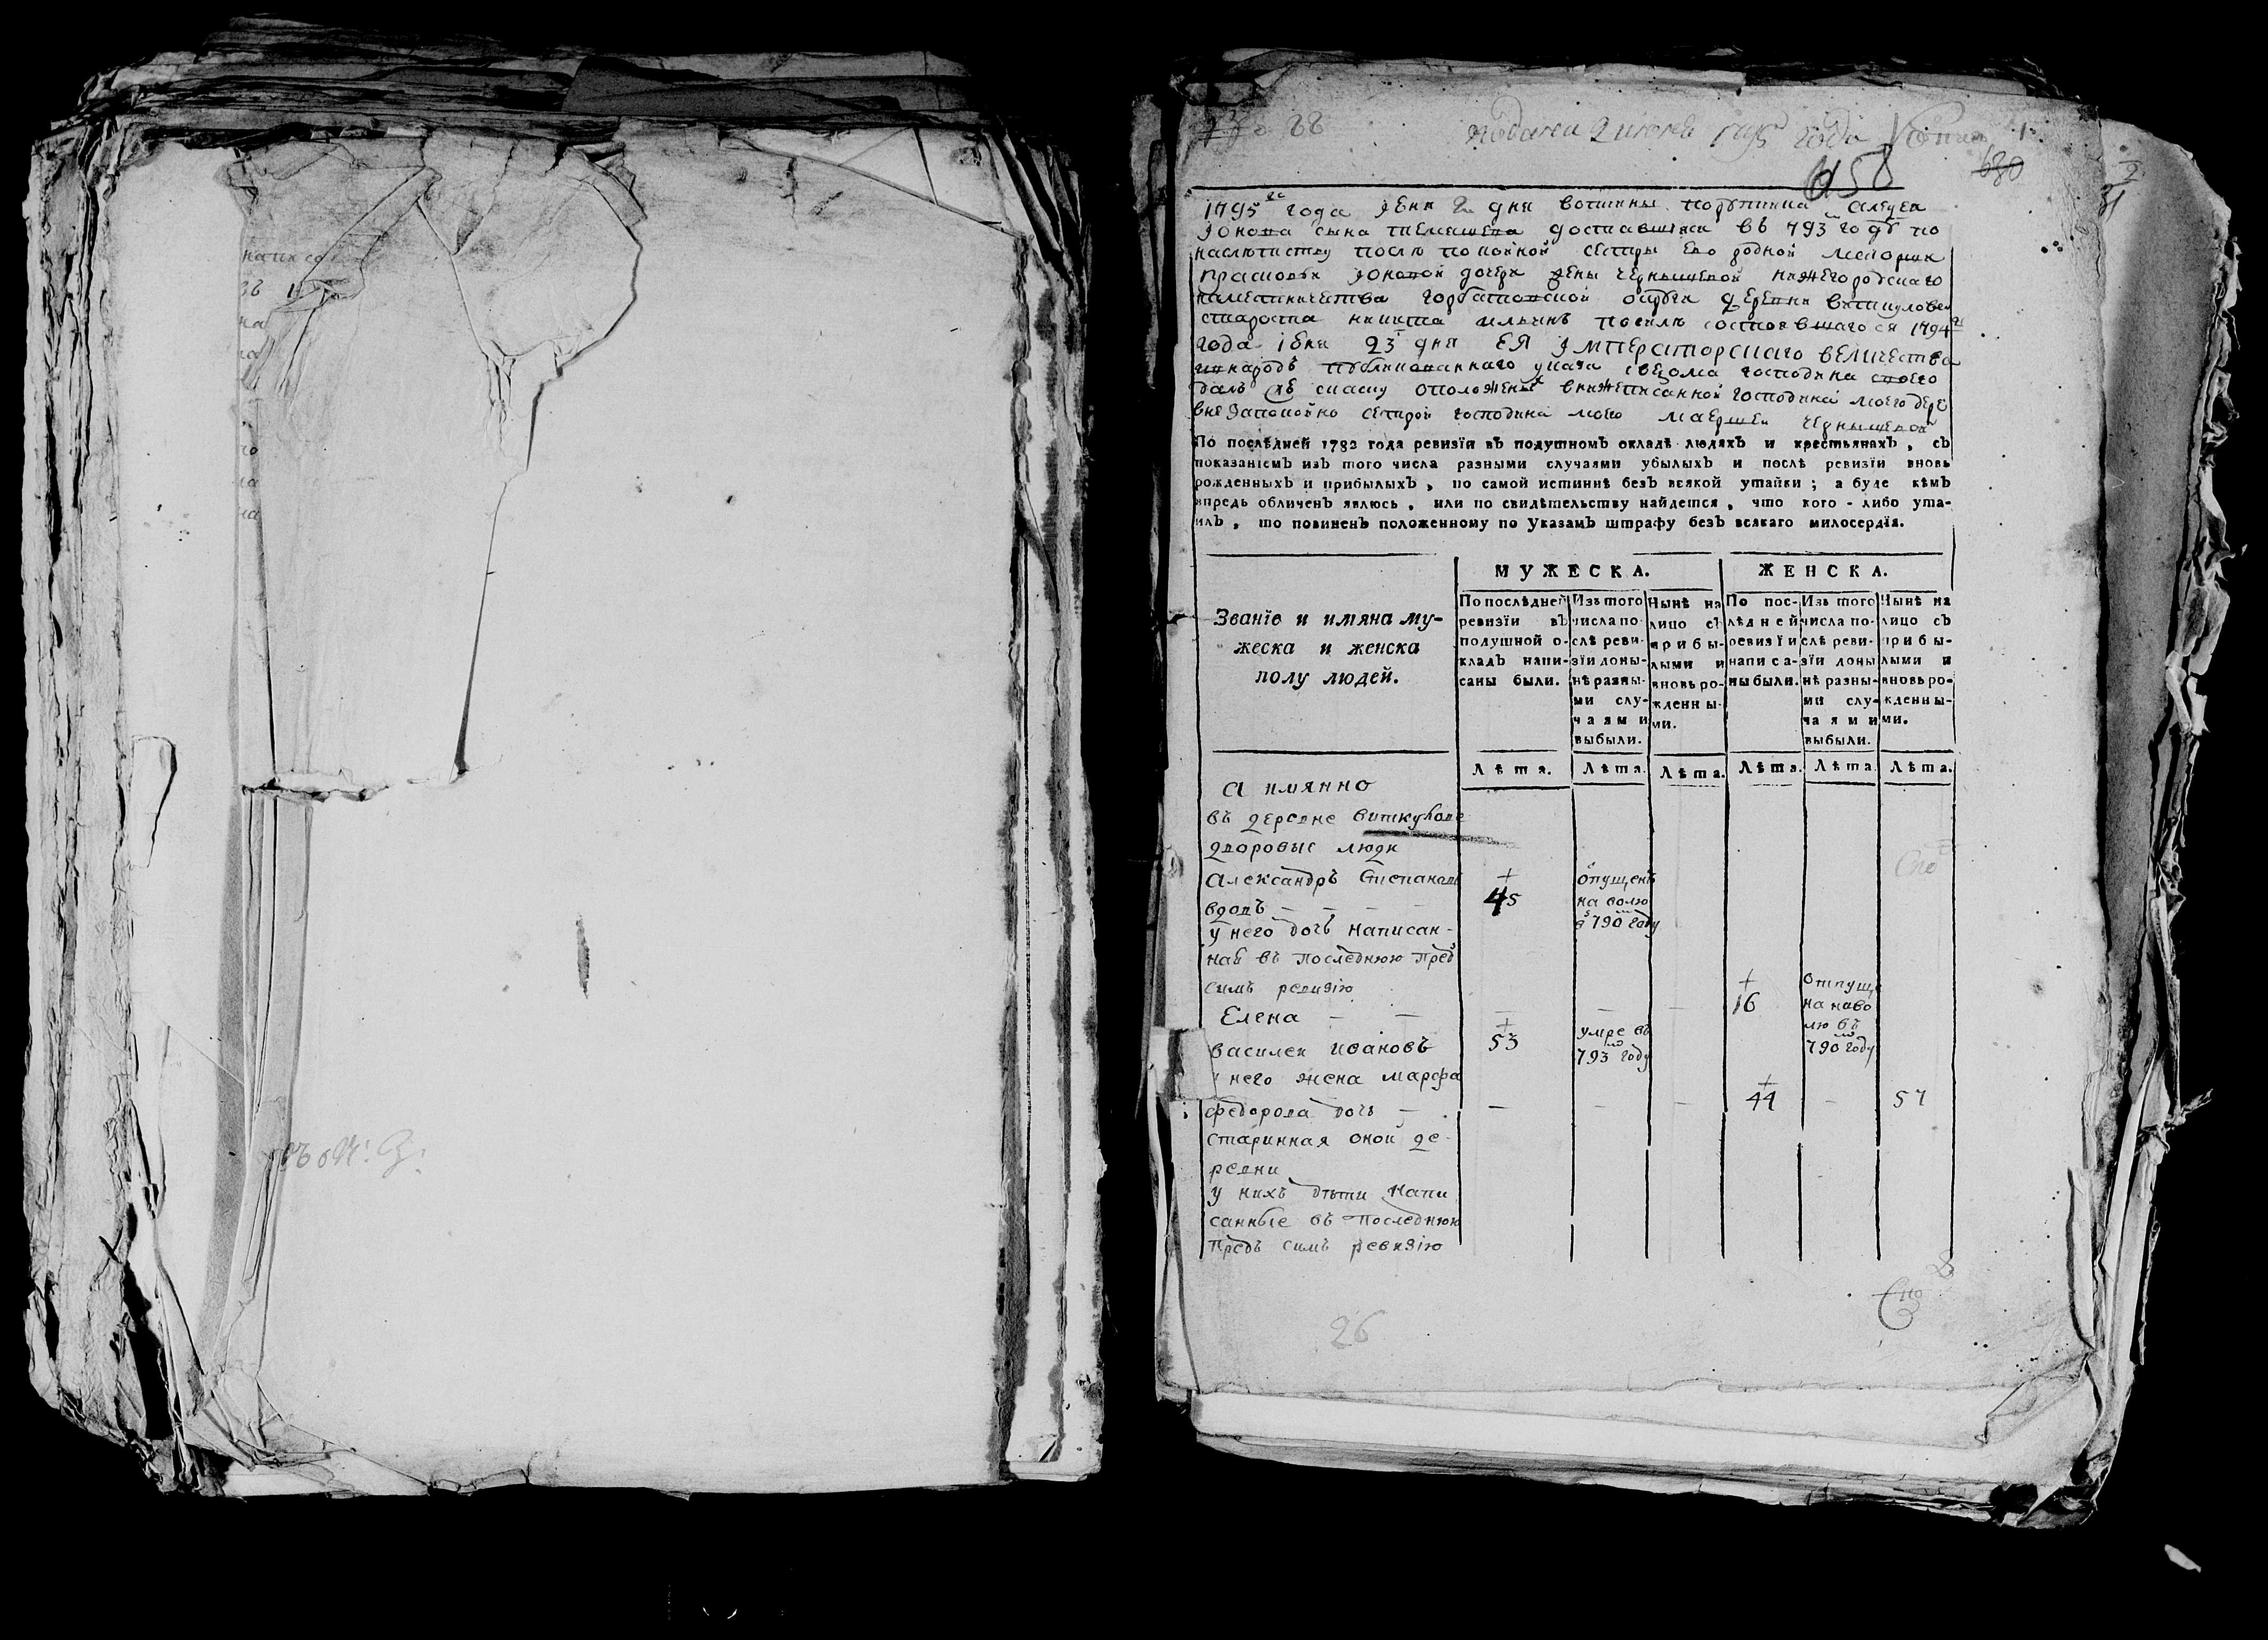 подана 2 июня 1795 года
458
680
1795 года Июня 2 дня вотчины порутчика
Ионова сына доставшиися въ 793 году по
наслетству после покойной сестры ево родной маиорши
Прасковьи Ионовой дочери жены Чернышевой нижегородскаго
наместничества горбатовской округи деревни Виткулова
староста никита ильинъ по силе состоявшагося 1794
года июня 23 дня ЕЯ Императорскаго величества
внародъ публикованнаго указа сведома господина своего
далъ сию скаску о положеных внижеписанной господина моего дере
вне запокойно сестрой господина моего маершей Чернышевой
По послѣдней 1782 года ревизїи въ подушномъ окладѣ людяхъ и крестьянахъ, съ
показанїемъ изъ того числа разными случаями убылыхъ и послѣ ревизїи вновь
рожденныхъ и прибылыхъ, по самой истиннѣ безъ всякой утайки; а буде кѣмъ
впредь обличенъ явлюсь, или по свидѣтельству найдется, что кого-либо ута-
илъ, то повиненъ положенному по Указамъ штрафу безъ всякаго милосердїя.
Званїе и имяна му-
жеска и женска
полу людей.
МУЖЕСКА.
По послѣдней
ревизїи въ
подушной о-
кладъ напи-
саны были.
Изъ того
числа по-
слѣ реви-
зїи доны-
нѣ разны-
ми слу-
чаями
выбыли.
Нынѣ на
лицо съ
прибы-
лыми и
вновь ро-
жденны-
ми.
ЖЕНСКА.
По пос-
лѣдней
ревизїи
написа-
ны были.
Изъ того
числа по-
слѣ реви-
зїи доны
нѣ разны-
ми слу-
чаями
выбыли.
Нынѣ на
лицо съ
прибы-
лыми и
вновь ро-
жденны-
ми.
Лѣта. Лѣта. Лѣта. Лѣта. Лѣта. Лѣта.
А имянно
въ деревне виткулове
дворовые люди
Александръ Степановъ + опущенъ
вдовъ — — — 45 на волю
в 790 году
у него дочь написан-
ная въ последнюю пред
симъ ревизию
Елена — — — — — + 16 отпуще на наво лю въ 790 году
василеи ивановъ + 53 умре въ 793 году
у него жена марфа
федорова дочь — — — — + 44 — 57
старинная оной де-
ревни
у нихъ дети напи
санные въ последнюю
предъ симъ ревизию
26